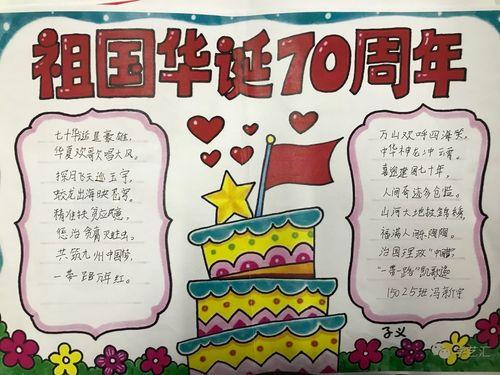 祖国华诞70周年
七十华诞显豪雄,
华夏欢歌唱大风。
探月飞天巡玉宇,
蛟龙出海映苍穹。
精准扶贫应民意,
惩治贪腐灭蛀虫。
共筑九州中国梦,
一带一路万年红。
万山欢呼四海笑,
中华神龙冲云霄。
喜迎建国七十年,
人间奇迹多自豪。
山河大地披锦绣,
福满人间乐陶陶。
治国理政"中国
"一带一路"凯歌
1502班冯新宇
子义
学艺汇